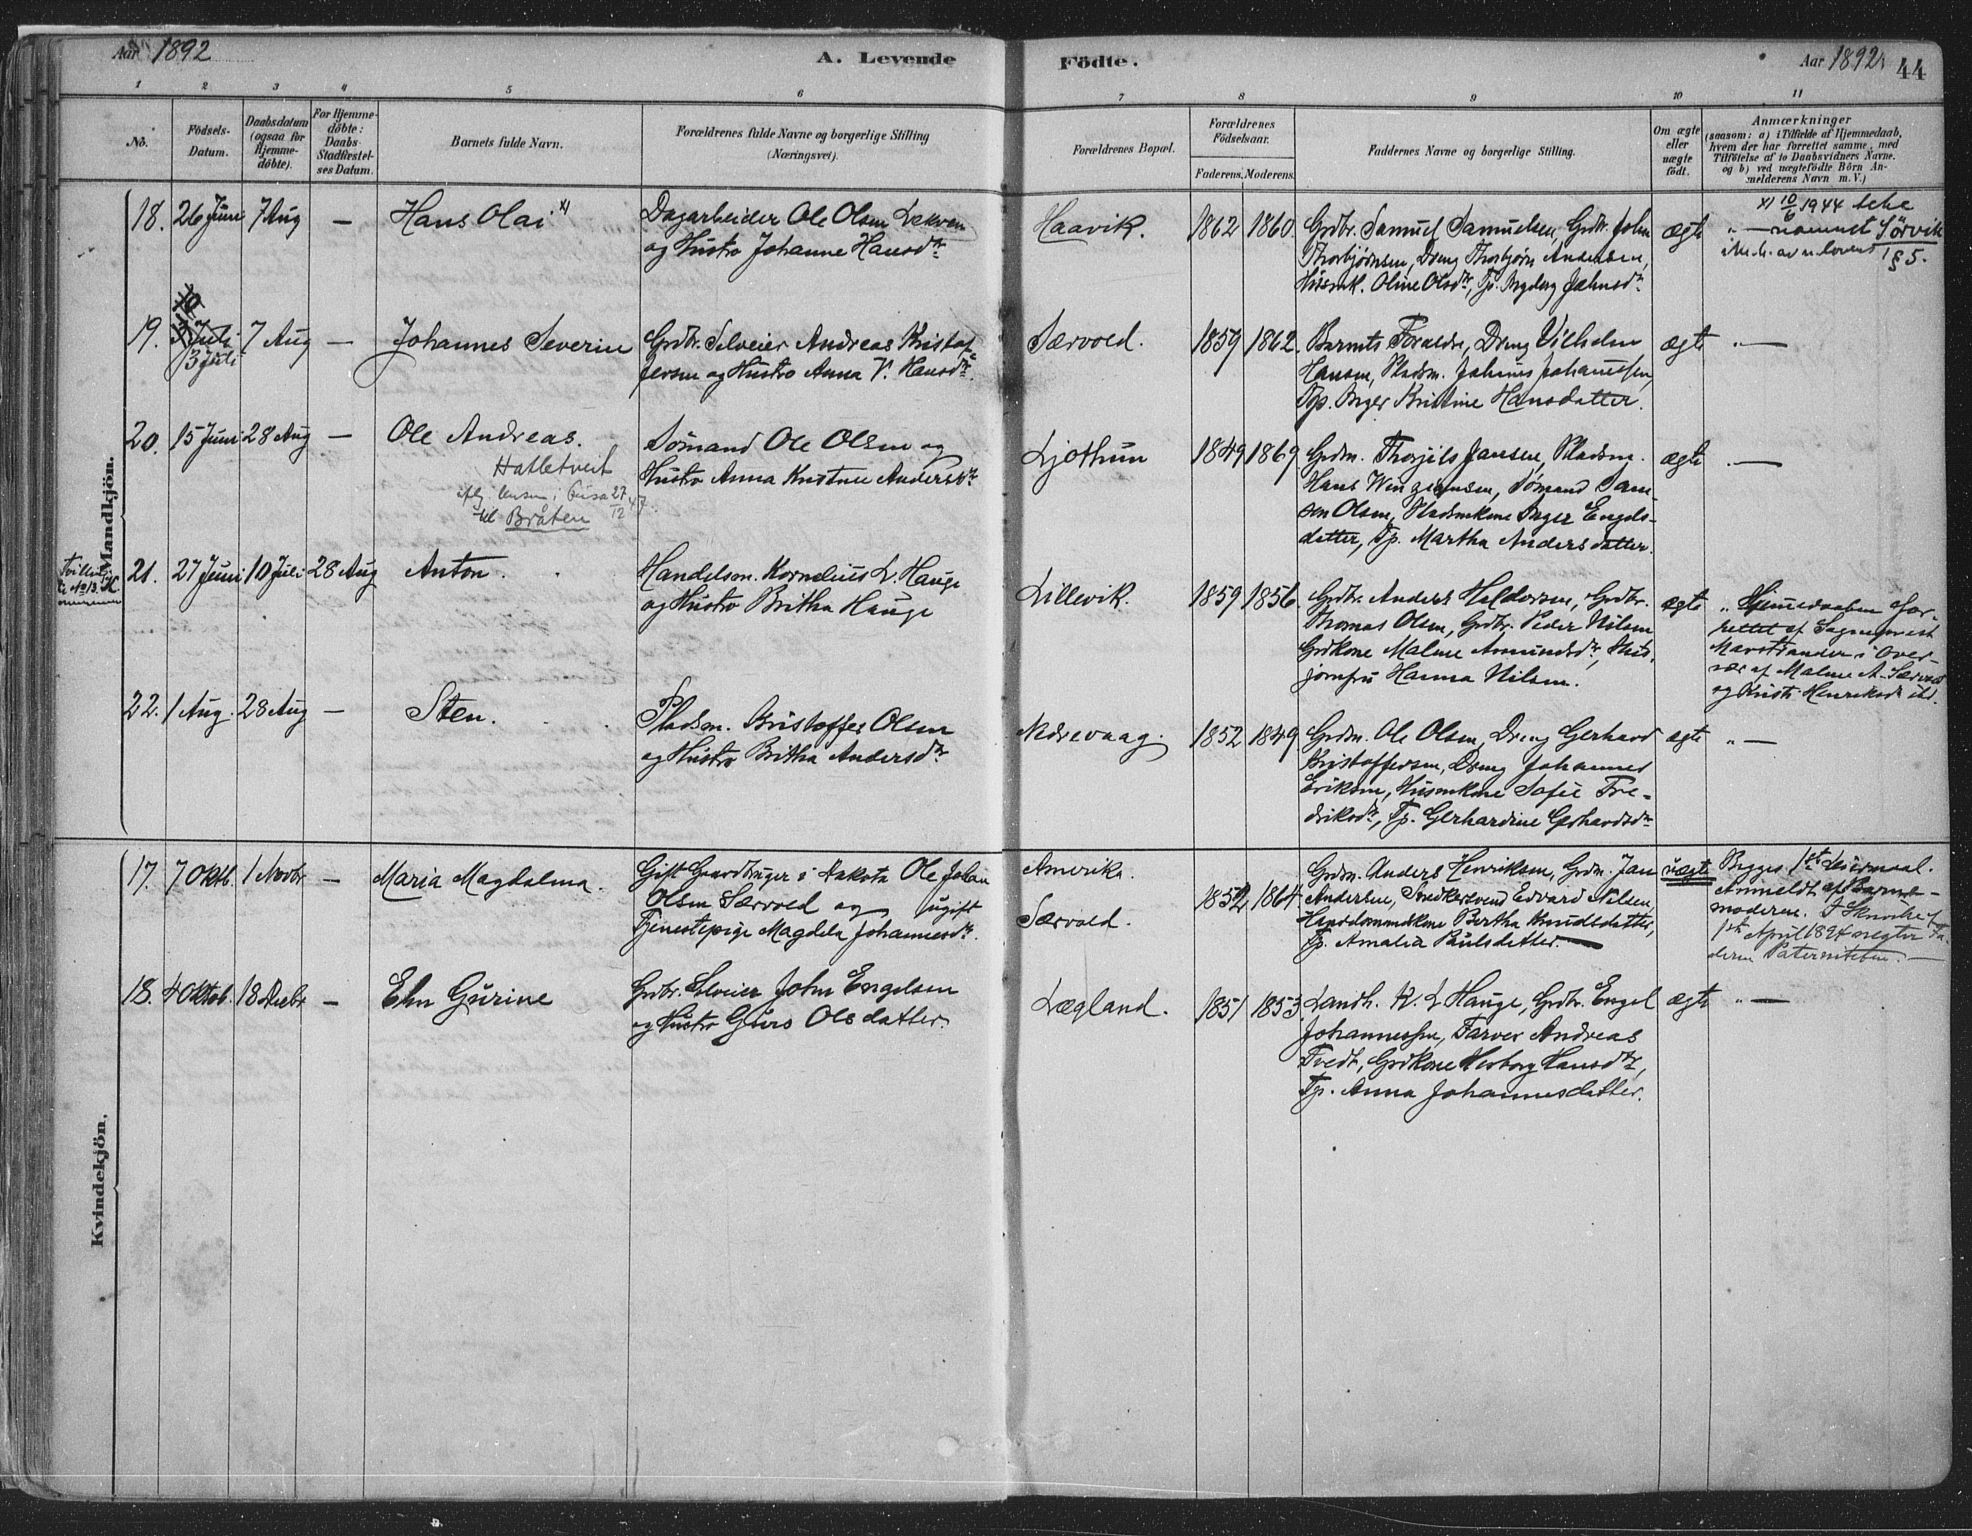 Aar 1892
A. Levende
Födte.
Aar 1892
44
1 2 3 4 5 6 7 8 9 10 11
No.
Födsels-
Datum.
Daabsdatum
(ogsaa for
Hjemme-
döbte).
For Hjemme-
döbte:
Daabs-
Stadfæstel-
ses Datum.
Barnets fulde Navn.
Forældrenes fulde Navne og borgerlige Stilling
(Næringsvei).
Forældrenes Bopæl.
Forældrenes
Födselsaar.
Faderens. Moderens.
Faddernes Navne og borgerlige Stilling.
Om ægte
eller
uægte
födt.
Anmærkninger
(saasom: a) i Tilfælde af Hjemmedaab,
hvem der har forrettet samme, med
Tilföielse af to Daabsvidners Navne.
og b) ved uægtefödte Börn An-
melderens Navn m. V.)
Mandkjön.
18. 26 Juni 7 Aug —
Hans Olai x)
Dagarbeider Ole Olsen Lekven
og Hustro Johanne Hansdtr
Haavik.
1862 1860.
Grdbr. Samuel Samuelsen, Grdbr. John
Thorbjørnsen, Dreng Thorbjørn Andersen,
Husmk. Oline Olsdtr, Tp. Ingeborg Johnsdtr
ægte
x) 10/6 1944
" — namnet Sörvik
§ 5.
19. Juli
3 Juli
7 Aug —
Johannes Severin
Grdbr. Selveier Andreas Kristof-
fersen og Hustro Anna V. Hansdtr.
Særvold.
1859 1862.
Barnets Forældre, Dreng Vilhelm
Hansen, Pladsm. Johannes Johannessen,
Tp. Inger Kristine Hansdatter.
ægte
" —
20. 15 Juni 28 Aug —
Ole Andreas.
Hatletveit
27/12 47
til Bråten
Sömand Ole Olsen og
Hustro Anna Kristine Andersdtr
Ljothun
1849 1869
Grdm. Thorgils Jansen, Pladsm.
Hans Sömand Sam-
son Olsen, Pladsmkone Inger Engels-
datter, Tp. Martha Andersdatter.
ægte
" —
21. 27 Juni 10 Juli 28 Aug
Anton.
Handelsm. Kornelius L. Hauge
og Hustro Britha Hauge
Lillevik.
1859 1856.
Grdbr. Anders Haldorsen, Grdbr.
Thomas Olsen, Grdbr. Peder Nilsen
Grdkone Malene Amundsdtr,
jomfru Hanna Nilsen.
ægte
" Hjemmedaaben for-
rettet af Sogneprest
Mavstrander i Over-
vær af Malene A. Særvold
og Henriksdtr ibd.
22. 1 Aug. 28 Aug —
Sten.
Pladsm. Kristoffer Olsen
og Hustro Britha Andersdtr
Nedrevaag.
1852 1849
Grdm. Ole Olsen, Dreng Gerhard
Kristoffersen, Dreng Johannes
Eriksen, Husmkone Sofie Fre-
driksdtr, Tp. Gerhardine Gerhardsdtr
ægte
" —
Kvindekjön.
17. 7 Oktb. 1 Novbr —
Maria Magdalena.
Gift Gaardbruger i Dakota Ole Johan
Olsen Særvold og ugift
Tjenestepige Magdela Johannesdtr.
Amerika.
Særvold.
1852 1864
Grdm. Anders Henriksen, Grdm. Jan
Andersen, Snedkersvend Edvard Nilsen,
Bertha Knudsdatter,
Tp. Amalia Paulsdatter. —
uægte
Begges 1ste Leiermaal.
Anmeldt af Barne-
moderen. I Skrivelse af
1ste April 1894 negter Fa-
deren Paterniteten. —
18. 4 Oktob. 18 Decbr —
Elen Gurine
Grdbr. Selveier John Engelsen
og Hustro Guro Olsdatter.
Lægland.
1851 1853
Landh. K. L. Hauge, Grdbr. Engel
Johannessen, Farver Andreas
Tvedt, Grdkone Herborg Hansdtr,
Tp. Anna Johannesdatter.
ægte
" —